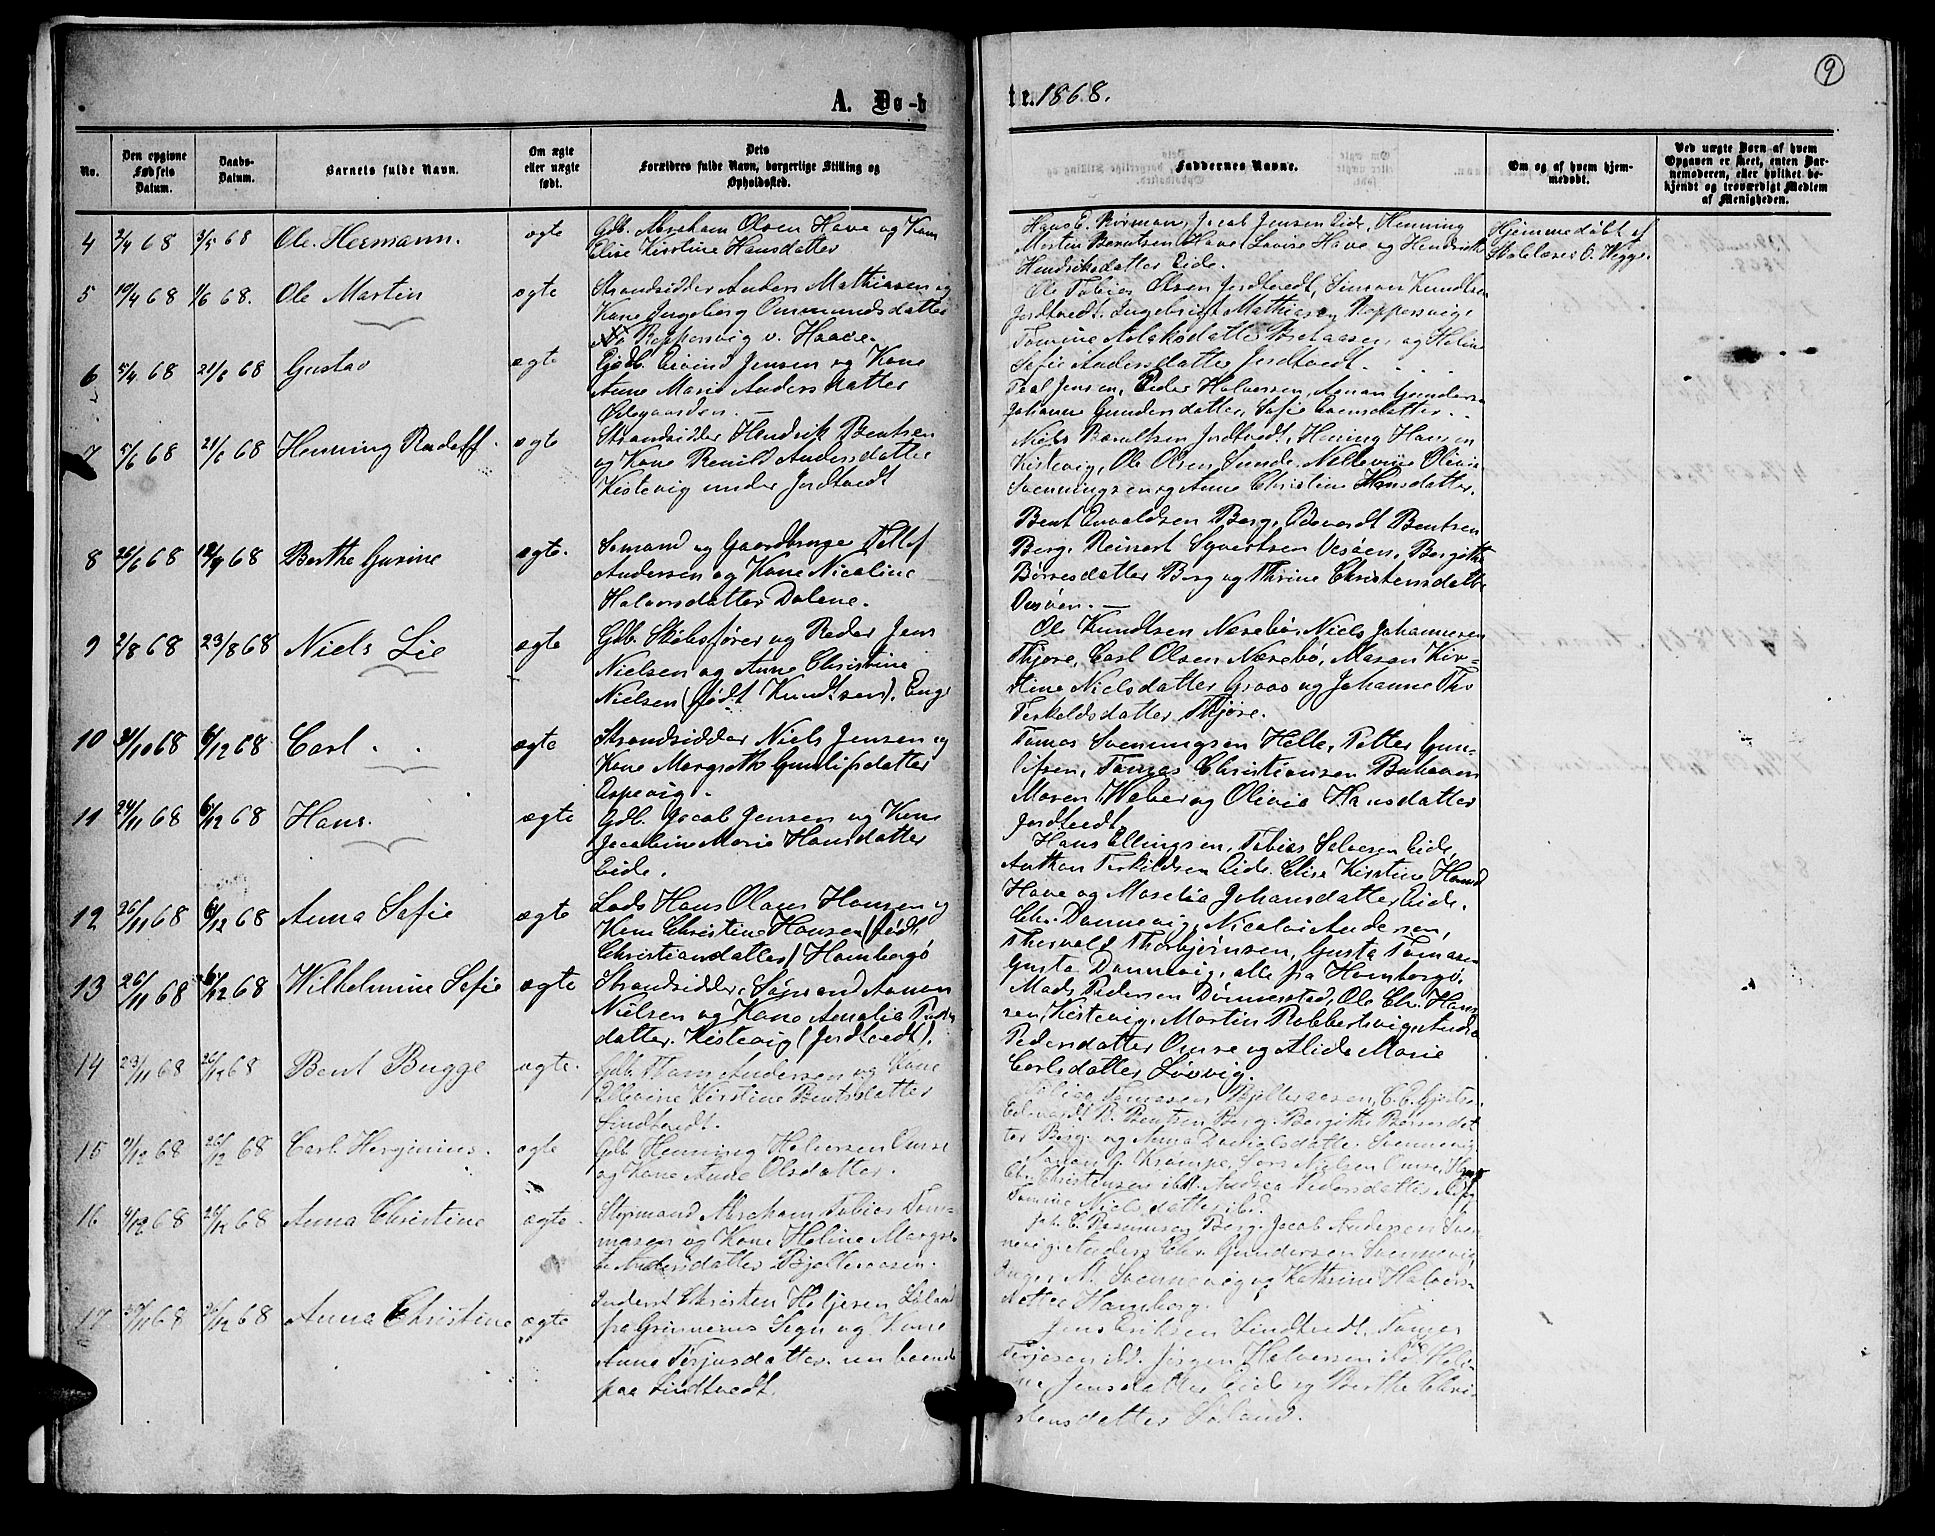 9
A. Dø-b
te. 1868.
No.
Den opgivne Fødsels Datum.
Daabs-Datum.
Barnets fulde Navn.
Om ægte eller uægte født.
Dets Forældres fulde Navn, borgerlige Stilling og Opholdssted.
Faddernes Navne.
Om og af hvem hjemmedøbt.
Ved uægte Born af hvem Opgaven er skeet, enten Barnemoderen, eller hvilket bekjendt og troværdigt Medlem af Menigheden.
4 2/4 68 3/5 68 Ole Hermann. ægte
Gdb. Abraham Olsen Have og Kone
Elise Kirstine Hansdatter
Hans E. Jacob Jensen Eide, Henning
Morten Berntsen Have, Lovise Have og Hendrikke
Hendriksdatter Eide.
Hjemmedøbt af
Skolelærer O. Vigge.
5 10/4 68 1/6 68. Ole Martin ægte
Strandsidder Anders Mathiasen og
Kone Ingeborg Ommundsdatter
Reppersvig v. Haave.
Ole Tobias Olsen Jordtvedt, Simon Knudsen
Jordtvedt, Ingebrigt Mathiasen Reppersvig,
Tomine og Heline
Sofie Andersdatter Jordtvedt.
6 5/4 68 21/6 68 Gustav ægte
Gdb. Eivind Jensen og Kone
Anne Marie Andersdatter
Ødegaarden.
Paal Jensen, Peder Halvorsen, Aanon Gunders
Johanne Gundersdatter, Sofie Evensdatter.
7 5/6 68 21/6 68 Henning Rudolf. ægte
Strandsidder Hendrik Bentsen
og Kone Renild Andersdatter
Kistevig under Jordtvedt
Niels Berntsen Jordtvedt, Hening Hansen
Kistevig, Ole Olsen Sunde, Nellevine Olivia
Svenningsen og Anne Christine Hansdatter.
8 26/6 68 12/7 68 Berthe Gurine ægte.
Sømand og Gaardbruger Tellef
Andersen og Kone Nicoline
Halvorsdatter Dalene.
Bent Osvaldsen Berg, Edvardt Bentsen
Berg, Reinert Syvertsen Vesøen, Bergithe
Børresdatter Berg og Thrine Christensdatter
Vesøen.
9 2/8 68 23/8 68 Niels Lie ægte
Gdb. Skibsfører og Reder Jens
Nielsen og Anne Christine
Nielsen (født Knudtsen). Enge
Ole Knudtsen Næsebø, Niels Johannesen
Thjøre, Carl Olsen Næsebø, Maren Kir-
stine Nielsdatter Groos og Johanne The
Terkeldsdatter Thjøre.
10 31/10 68 6/12 68 Carl. ægte
Strandsidder Niels Jensen og
Kone Margrethe Gunlifsdatter
Aspevig.
Tomas Svenningsen Helle, Petter Gun-
lifsen, Tomas Christiansen Buhaven
Maren Weber og Olivia Hansdatter
Jordtvedt.
11 24/11 68 6/12 68 Hans. ægte
Gdb. Jacob Jensen og Kone
Jacobine Marie Hansdatter
Eide.
Hans Ellingsen, Tobias Salvesen Eide,
Anthon Terkildsen Eide, Elise Kirstine Hansd
Have og Maselia Johansdatter Eide.
12 26/11 68 6/12 68 Anna Sofie ægte
Lods Hans Olaus Hansen og
Kone Christine Hansen (født
Christiansdatter) Homborgø
Chr. Dannevig, Nicolai Andersen,
Thorvald Thorbjørnsen, Gusta Tomasen
Gusta Dannevig, alle fra Homborgø.
13 26/11 68 6/12 68 Wilhelmine Sofie ægte
Strandsidder, Sømand Aanon
Nielsen og Kone Amalia Peders
datter. Kistevig (Jordtvedt).
Mads Pedersen Dønnestad, Ole Chr. Han-
sen Kistevig, Martin Robbertsvig, Andrea
Pedersdatter Omre og Alida Marie
Carlsdatter Løvvig.
14 23/11 68 26/12 68 Bent Bugge ægte.
Gdb. Andersen og Kone
Ellevine Kirstine Bentsdatter
Lindtvedt.
Tobias Tomasen Bjelleraasen,
Edvardt B. Bentsen Berg, Bergithe Børresdat
ter Berg og Anna Danielsdatter Svennevig
15 9/12 68 26/12 68 Carl Herginius. ægte
Gdb. Henning Halvorsen Omre
og Kone Anne Olsdatter.
Lars Nielsen Omre,
Chr. Christensen ibd. Andrea Pedersdatter
Tomine Nielsdatter ibd.
16 4/12 68 26/12 68 Anna Christine ægte
Styrmand Abraham Tobias Tom-
masen og Kone Heline Margre-
te Andersdatter Bjelleraasen.
Joh. C. Rasmusen Berg, Jacob Andersen Sven-
nevig, Anders Chr. Gundersen Svennevig
Inger M. Svennevig og Kathrine Halvors-
datter Homborg.
17 30/11 68 26/12 68 Anna Christine ægte
Inderst Christen Heljesen Løland
fra Grimnæs Sogn og Kone
Anna Terjusdatter. nu boende
paa Lindtvedt.
Jens Eriksen Lindtvedt, Tomas
Terjesen ibd. Jørgen Halvorsen ibd. Heli-
ne Jensdatter Eide og Berthe Chri-
stensdatter Løland.